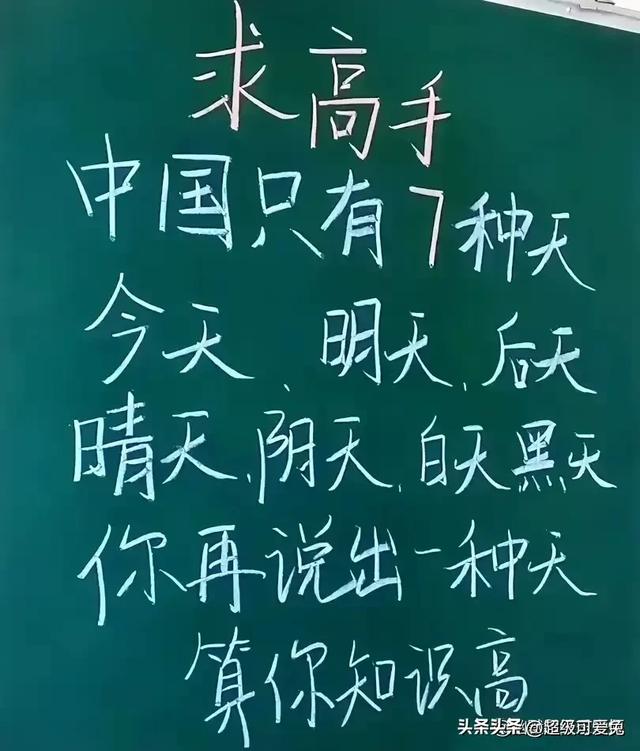 求高手
中国只有7种天
今天、明天、后天
晴天、阴天、白天黑天
你再说出一种天
算你知识高
头条 @超级可爱兔